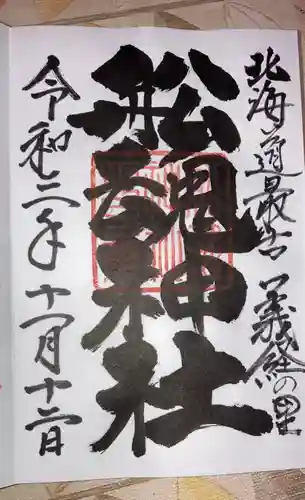 北海道最古 義経の里
舩魂神社
令和二年十一月十二日